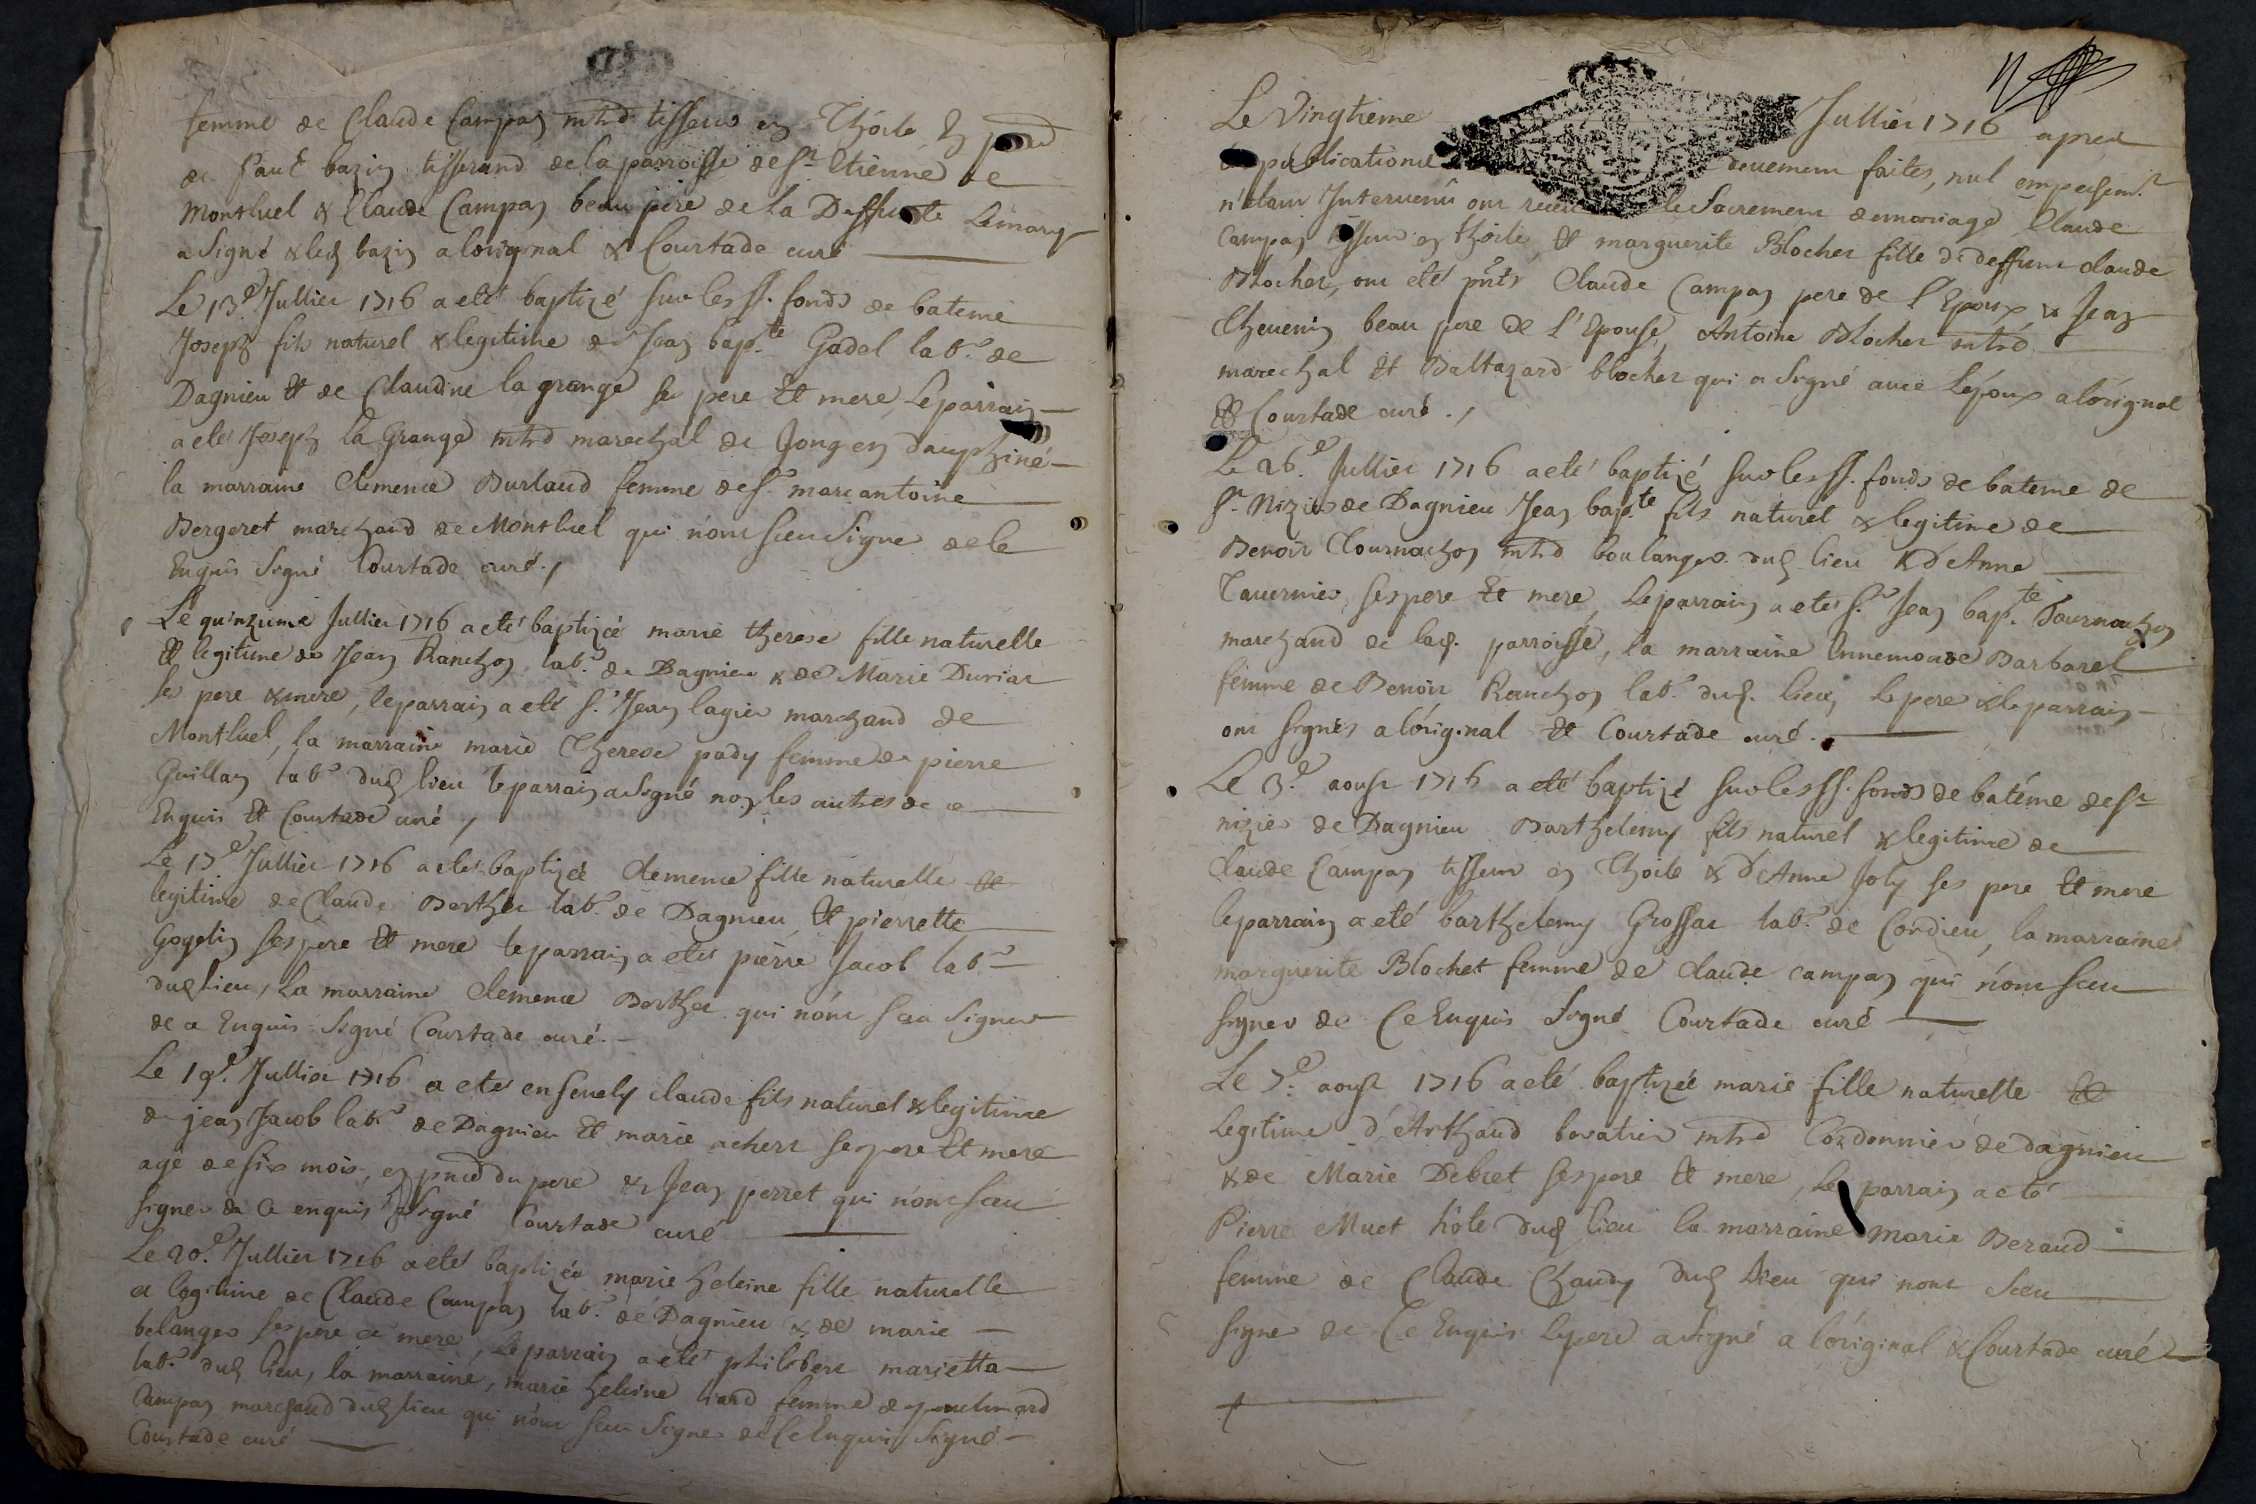 femme de Claude Campan mtrd tisseur en Thoile En pnce
de paul bazin tisserand de la parroisse de St Etienne de
Montluel & Claude Campan beau pere de la Deffunte Le mary
a Signé & led bazin a loriginal & Courtade curé
Le 13e Jullier 1716 a eté baptizé sur les ss. fonds de bateme
Joseph fils naturel & legitime de Jean bapte Gadel labr. de
Dagnieu Et de Claudine la grange ses pere Et mere, Le parrain
a eté Joseph la Grange mtrd marechal de Jong en dauphiné
la marraine Clemence Burtaud femme de sr marc antoine
Bergeret marchand de Montluel qui n'ont sceu Signe de ce
Enquis Signé Courtade curé./
Le quinzieme Jullier 1716 a eté baptizée marie therese fille naturelle
Et legitime de Jean Ranchon labr. de Dagnieu & de Marie Duriat
ses pere & mere, le parrain a eté sr. Jean lagier marchand de
Montluel, la marraine marie Therese pady femme de pierre
Guillan labr dud lieu le parrain a signé non les autres de ce
Enquis Et Courtade curé /
Le 17e Jullier 1716 a eté baptizée Clemence fille naturelle Et
legitime de Claude Berthet labr. de Dagnieu Et pierrette
Gogelin ses pere Et mere le parrain a eté pierre Jacob labr.
dud lieu, La marraine Clemence Berthet qui n'ont sceu Signer
de ce Enquis Signé Courtade curé.
Le 19e. Jullier 1716 a eté ensevely claude fils naturel & legitime
de jean Jacob labr. de Dagnieu Et marie achert ses pere Et mere
agé de six mois, en pnce du pere & Jean perret qui n'ont sceu
signer de ce enquis Signé Courtade curé
Le 20e. Jullier 1716 a eté baptizée marie heleine fille naturelle
et legitime de Claude Campan labr. de Dagnieu & de marie
belanger ses pere et mere, Le parrain a eté philibert marietta
labr. dud lieu, la marraine, marie heleine liard femme de
Campan marchand dud lieu qui n'ont sceu Signer de Ce Enquis Signé
Courtade curé
Le Vingtieme Jullier 1716 apres
les publications deuement faites, nul empeschemt
n'etant Intervenû ont receu le Sacrement de mariage Claude
Campan tisseur en thoile, Et marguerite Blochet fille de deffunt claude
Blochet, ont eté pnts Claude Campan pere de l'Epoux, & Jean
Thevenin beau pere de l'Epouse, Antoine Blochet mtrd
marechal Et Baltazard blochet qui a Signé avec Lépoux a lóriginal
Et Courtade curé./
Le 26.e Jullier 1716 a eté baptizé sur les ss. fonds de bateme de
st. Nizier de Dagnieu Jean bapte fils naturel & legitime de
Benoit Tournachon mtrd boulanger dud lieu & d'Anne
Tavernier ses pere Et mere Le parrain a eté sr. Jean bapte Tournachon
marchand de lad. parroisse, la marraine Ennemonde Barbaret
femme de Benoit Ranchon labr. dud. lieu, Le pere & le parrain
ont signés a lóriginal Et Courtade curé.
Le 3.e aoust 1716 a eté baptizé sur les ss. fonds de batéme de st
nizier de Dagnieu Barthelemy fils naturel & legitime de
Claude Campan tisseur en Thoile & d'Anne Joly ses pere Et mere
le parrain a eté barthelemy Grossat labr. de Cordieu, la marraine
marguerite Blochet femme de claude campan qui n'ont sceu
signer de Ce Enquis Signé Courtade curé
Le 7.e aoust 1716 a eté baptizée marie fille naturelle Et
Legitime d'Arthaud bovatier mtrd Cordonnier de dagnieu
& de Marie Debret ses pere Et mere, Le parrain a eté
Pierre Muet hôte dud lieu la marraine Marie Beraud
femme de Claude Chaudy dud Lieu qui n'ont Sceu
Signer de Ce Enquis Le pere a Signé a lóriginal & Courtade curé